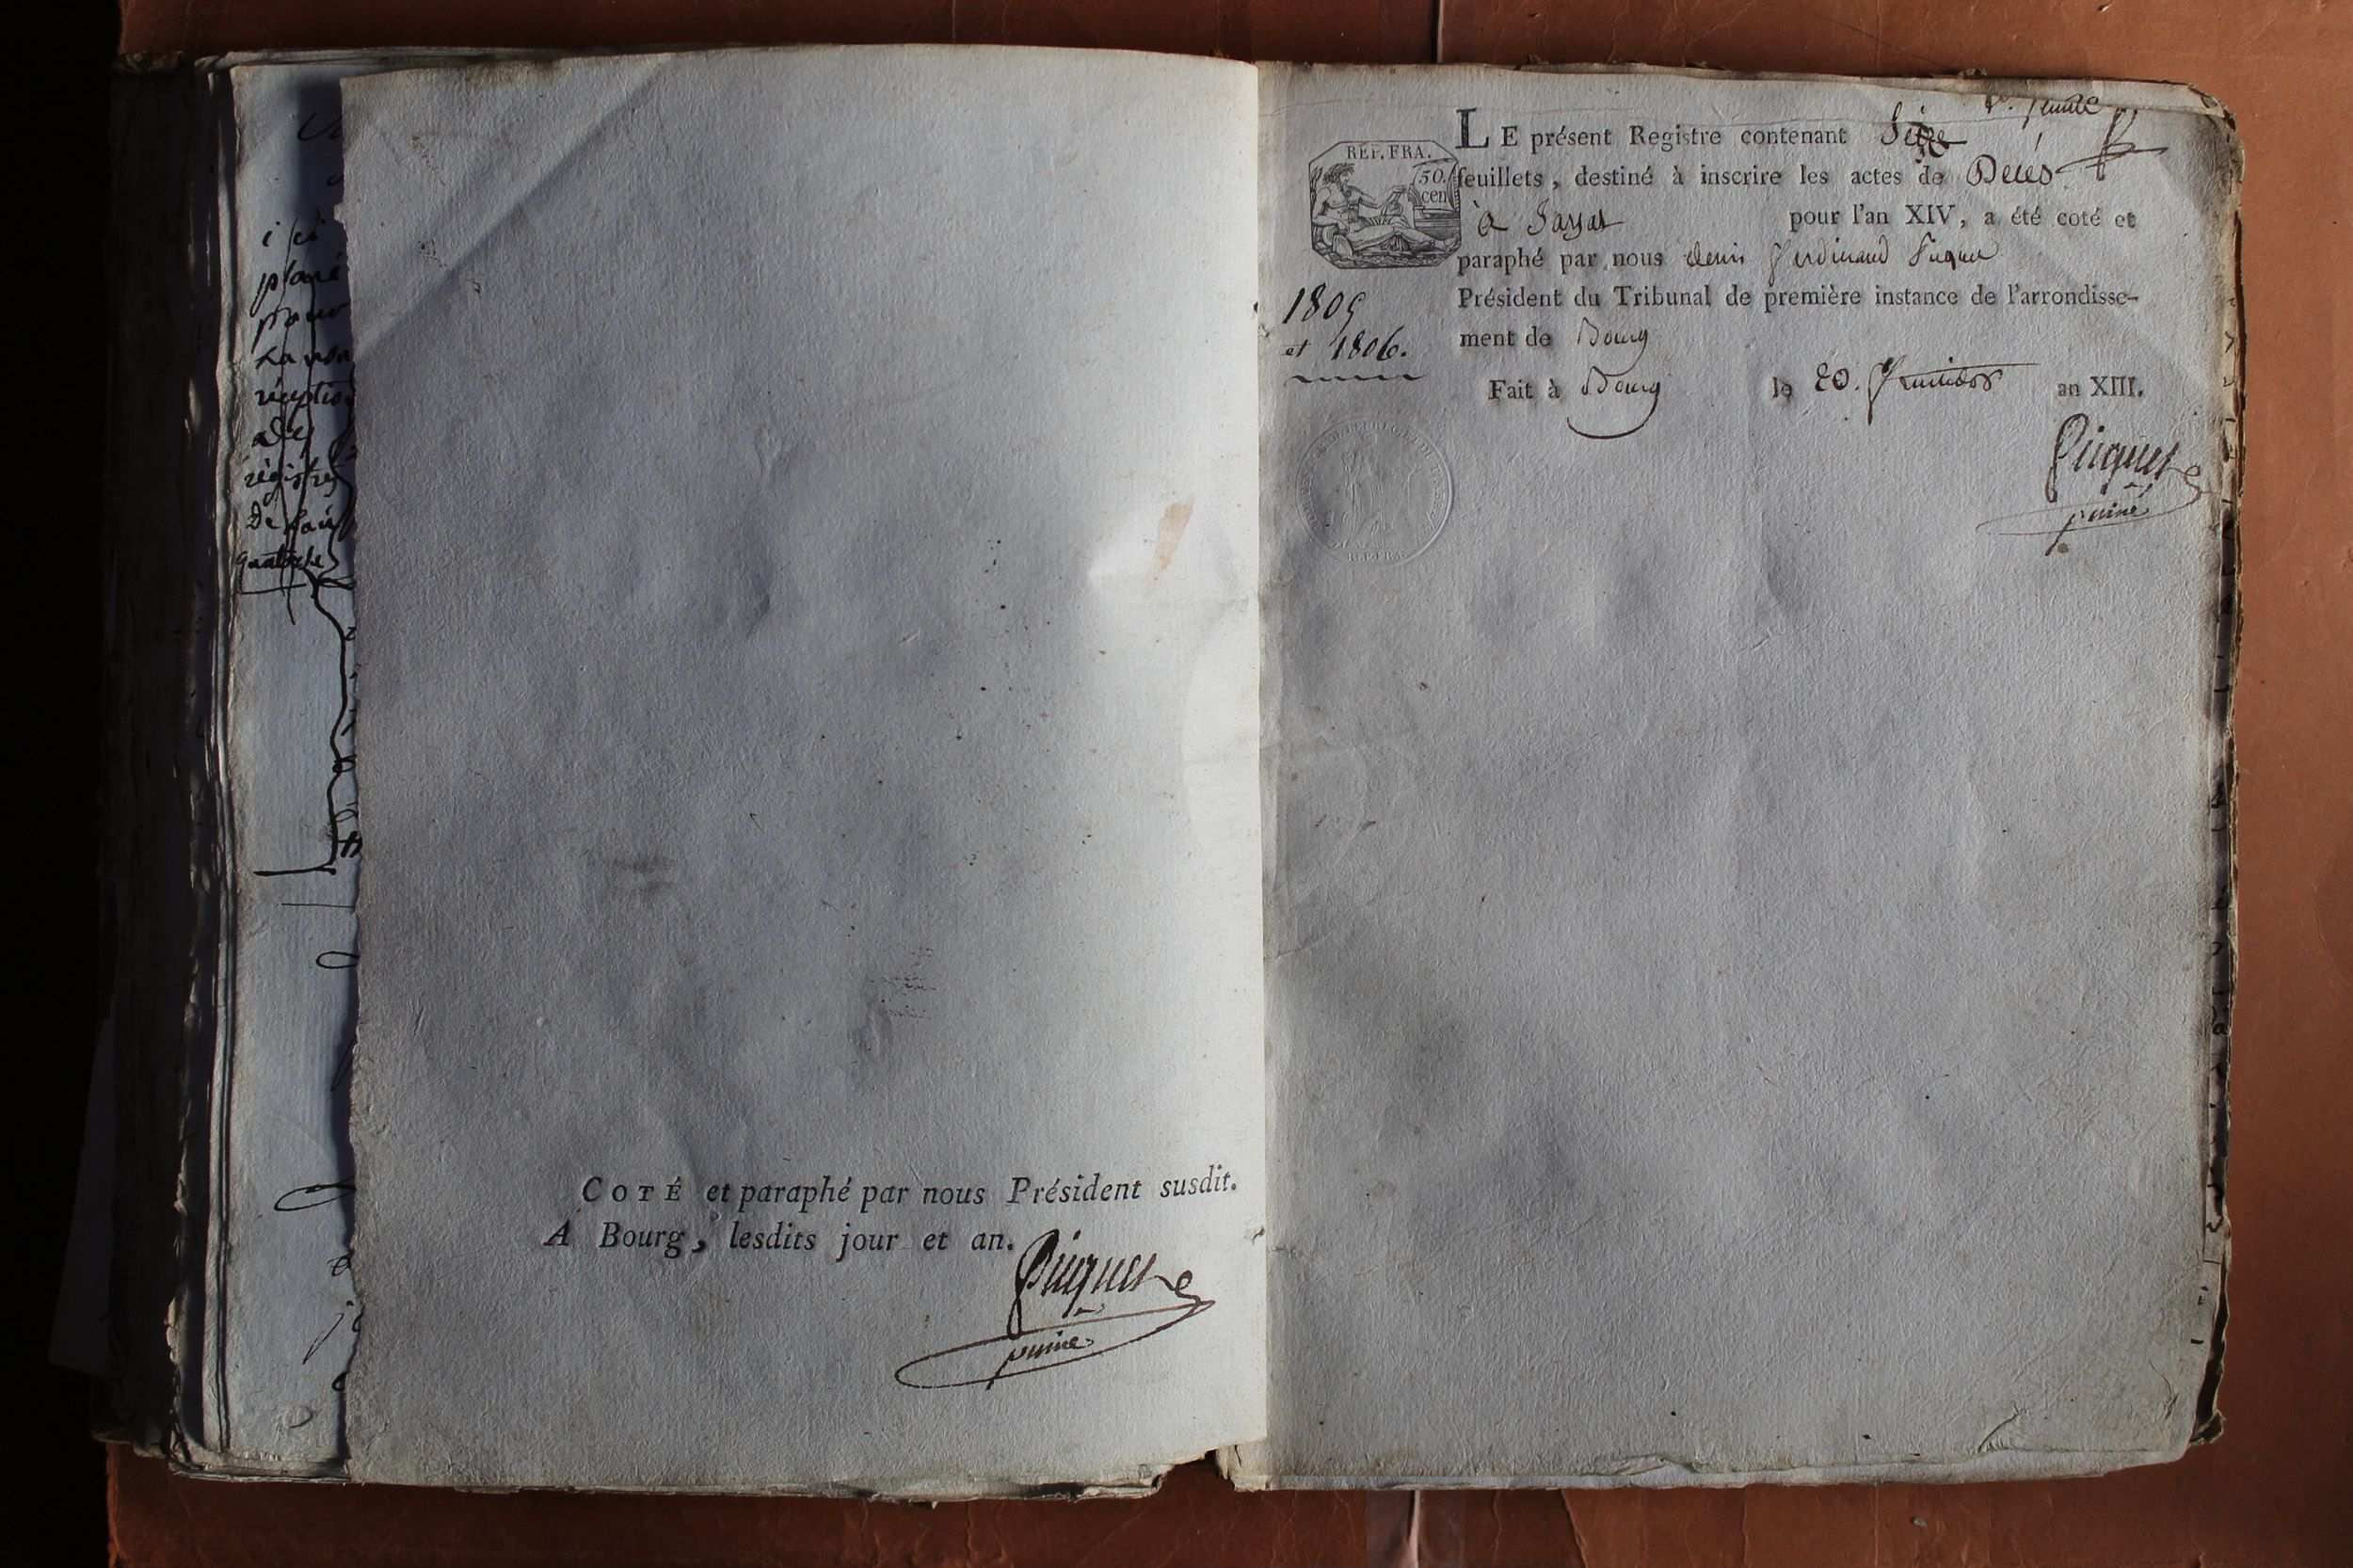 plané
pour
La non
réception
des
registres
De
quatorze
COTÉ et paraphé par nous Président susdit.
A Bourg, lesdits jour et an.
Picquet
puiné
1er. feuillet
LE présent Registre contenant Seize
RÉP. FRA.
50.
cen
feuillets, destiné à inscrire les actes de Décés
à Jayat pour l'an XIV, a été coté et
paraphé par nous denis ferdinand Picquet
Président du Tribunal de première instance de l'arrondisse-
1805
et 1806.
ment de Bourg
Fait à Bourg le 20. fructidor an XIII.
Picquet
puiné
REP. FRA.